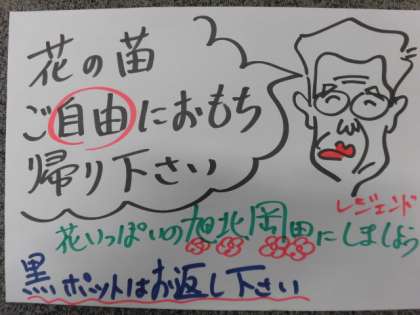 花の苗
ご自由におもち
帰り下さい
レジェンド
花いっぱいの旭北岡田にしましょう
黒ポットはお返し下さい